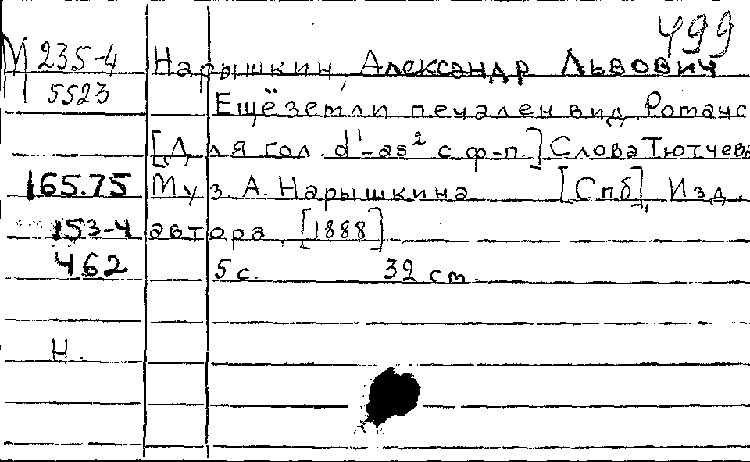 499
М 235-4 Нарышкин, Александр Львович
5523 Ещё земли печален вид. Романс
[Для гол. d¹-as² с ф-п] Слова Тютчева
165.75 Муз. А. Нарышкина [Спб], Изд.
153-4 автора, [1888]
462 5 с. 32 см
Н.